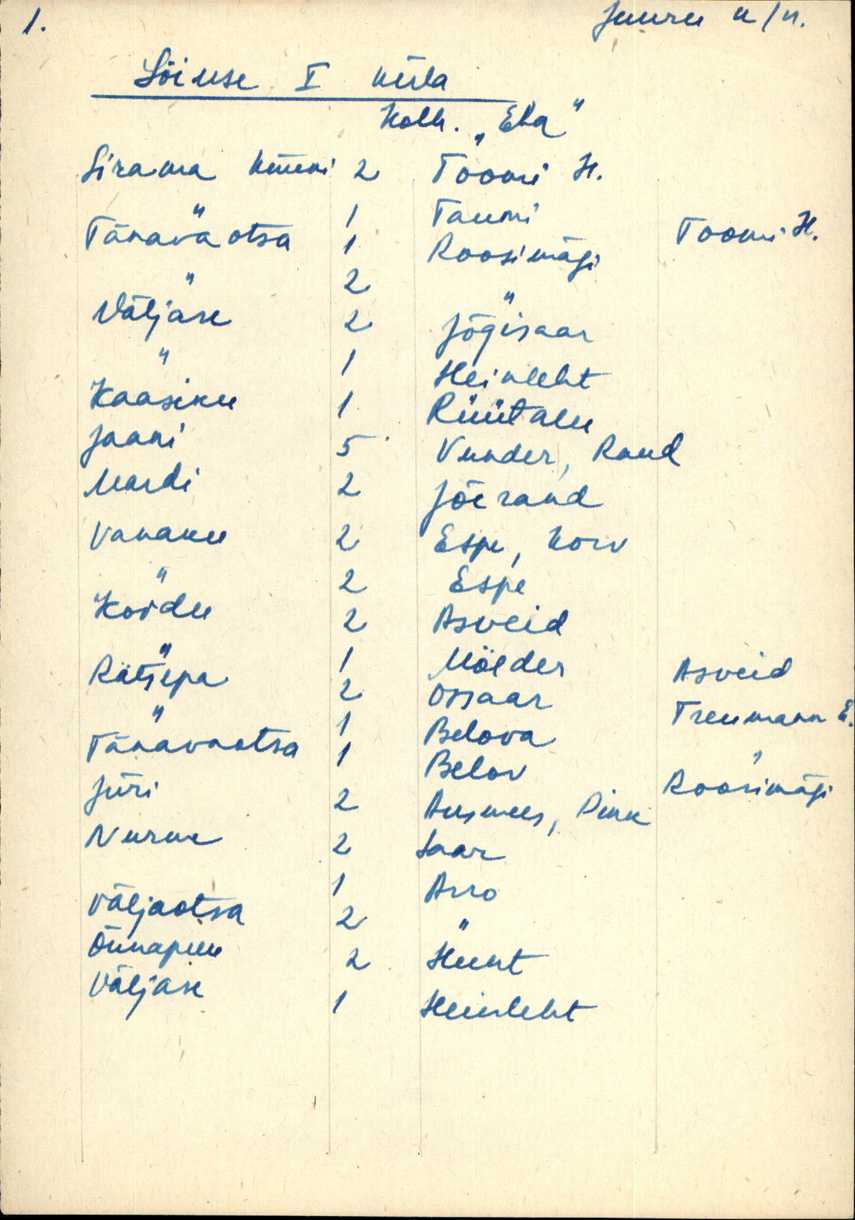 1.
Juuru k/n.
Lõiuse I küla
Kolh. „Eha"
Sirama Kiini 2 Toomi H.
" 1 Taumi
Tänavaotsa 1 Roosimägi Toomi H.
" 2 "
Väljase 2 Jõgisaar
" 1 Heinleht
Kaasiku 1 Rüütalu
Jaani 5 Vunder, Rand
Mardi 2 Jõerand
Vanaku 2 Espe, Korv
" 2 Espe
Kordu 2 Asveid
" 1 Mölder Asveid
Rätsepa 2 Ossaar
" 1 Belova Treumann E.
Tänavaotsa 1 Belov "
Jüri 2 Ausmees, Pink Roosimägi
Nurme 2 Saar
1 Arro
Väljaotsa 2 "
Õunapuu 2 Hunt
Väljase 1 Heinleht